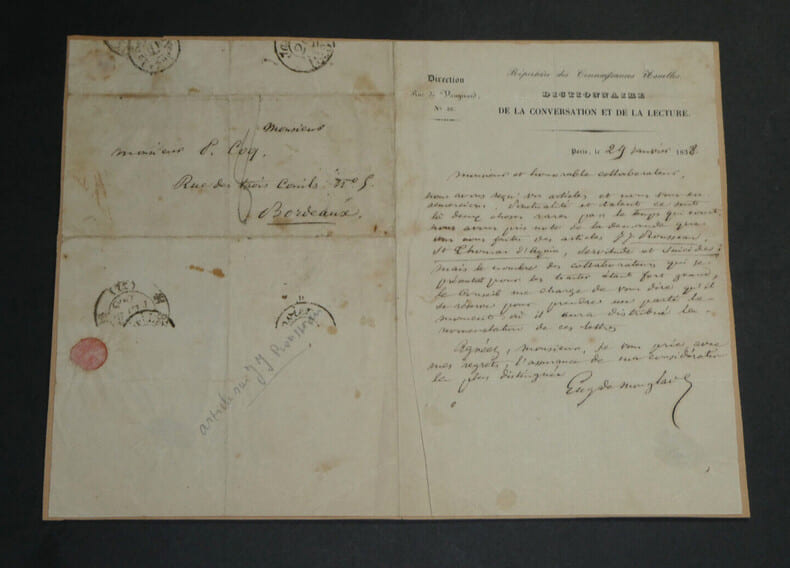 Monsieur
Monsieur P. Coq,
Rue des trois Conils, N° 5
Bordeaux.
(75)
article sur J J Rousseau
Direction
Rue de Vaugirard,
N°
Répertoire des Connaissances Usuelles.
DICTIONNAIRE
DE LA CONVERSATION ET DE LA LECTURE.
Paris, le 29 Janvier 1838.
Monsieur et honorable collaborateur,
nous avons reçu vos articles et nous vous en
remercions d'exactitude et talent ce sont
là deux choses rares par le temps qui court.
nous avons pris note de la demande que
vous nous faites des articles J J Rousseau,
St Thomas d'Aquin, servitude et suicide;
mais le nombre des collaborateurs qui se
présentent pour les traiter étant fort grand,
le Conseil me charge de vous dire qu'il
se réserve pour prendre un parti le
moment où il aura distribué la
nomenclature de ces lettres
Agréez, monsieur, je vous prie, avec
mes regrets, l'assurance de ma considération
la plus distinguée
Eug de monglave